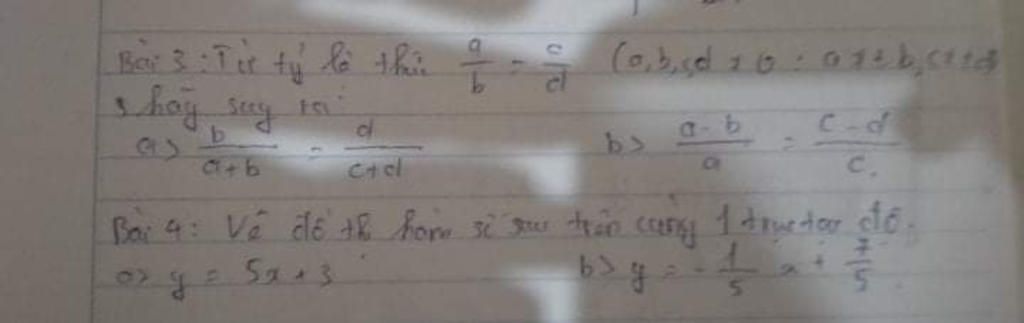 Bài 3: Từ tỷ lệ thức a/b = c/d (a, b, c, d ≠ 0; a ≠ ± b, c ≠ ± d)
hãy suy ra:
a> b/(a+b) = d/(c+d) b> (a-b)/a = (c-d)/c.
Bài 4: Vẽ đồ thị hàm số sau trên cùng 1 trục tọa độ.
a> y = 5x + 3 b> y = -1/5 x + 7/5